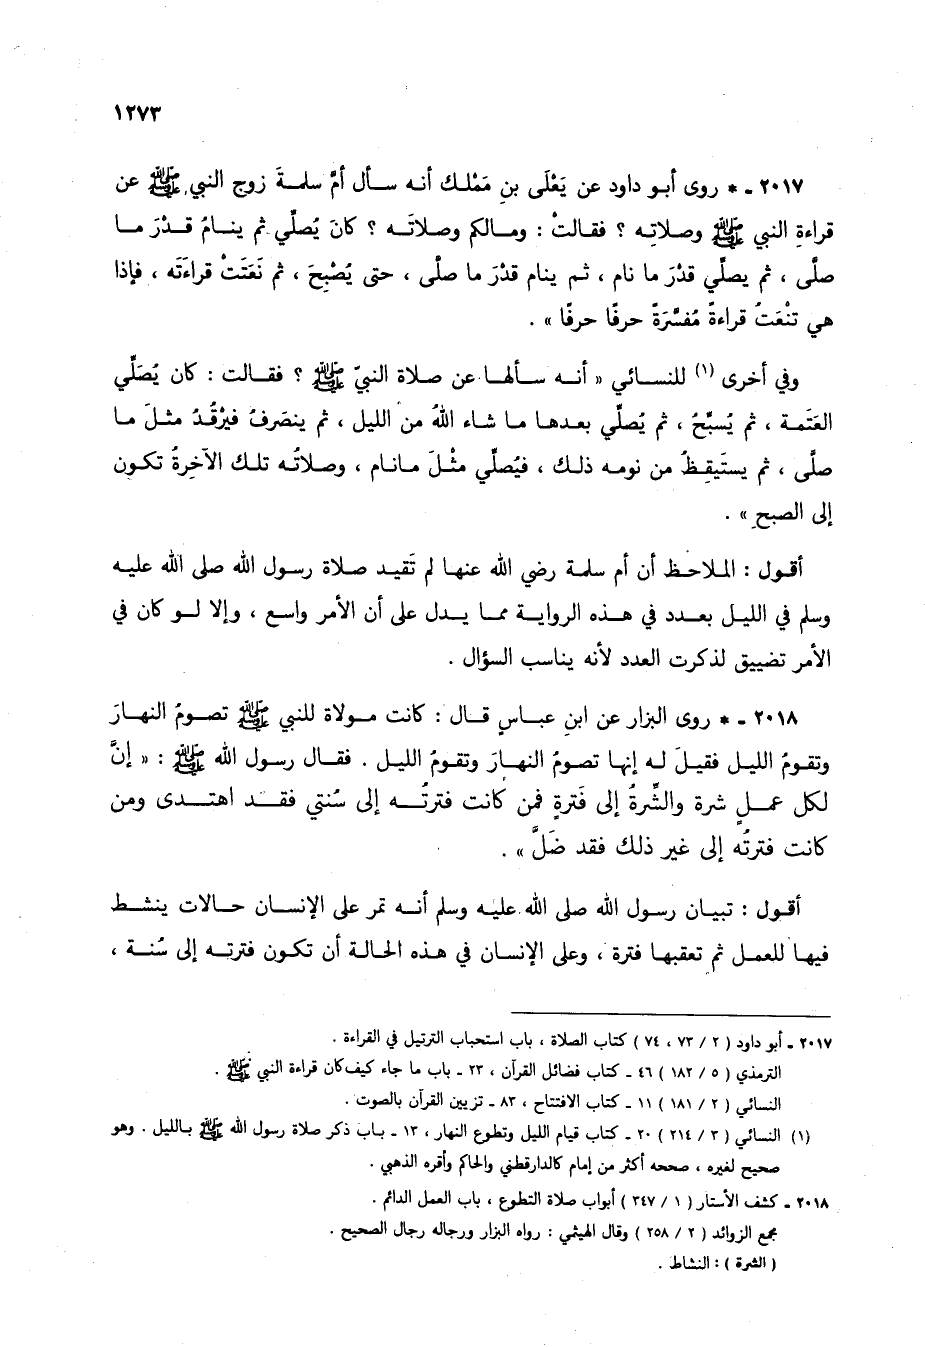 ١٢٧٣
٢٠١٧ ـ * روى أبو داود عن يَعْلَى بنِ مَمْلك أنه سأل أمَّ سلمةَ زوج النبي ﷺ عن
قراءةِ النبي ﷺ وصلاتِه ؟ فقالتْ : ومالكم وصلاتَه ؟ كانَ يُصلِّي ثم ينامُ قدْرَ ما
صلَّى ، ثم يصلِّي قدْرَ ما نام ، ثم ينام قدْرَ ما صلَّى ، حتى يُصْبِحَ ، ثم نَعَتَتْ قراءَتَه ، فإذا
هي تنْعَتُ قراءةً مُفسَّرَةً حرفًا حرفًا » .
وفي أخرى (١) للنسائي « أنه سألها عن صلاة النبيّ ﷺ ؟ فقالت : كان يُصَلِّي
العَتَمة ، ثم يُسبِّحُ ، ثم يُصلِّي بعدها ما شاء اللهُ من الليل ، ثم ينصَرفُ فيَرْقُدُ مثلَ ما
صلَّى ، ثم يستَيقِظُ من نومه ذلك ، فيُصلِّي مثْلَ مانام ، وصلاتُه تلك الآخِرةُ تكون
إلى الصبحِ » .
أقول : الملاحظ أن أم سلمة رضي الله عنها لم تَقيد صلاة رسول الله صلى الله عليه
وسلم في الليل بعدد في هذه الرواية مما يدل على أن الأمر واسع ، وإلا لو كان في
الأمر تضييق لذكرت العدد لأنه يناسب السؤال .
٢٠١٨ ـ * روى البزار عن ابنِ عباسٍ قال : كانت مولاة للنبي ﷺ تصومُ النهارَ
وتقومُ الليل فقيلَ له إنها تصومُ النهارَ وتقومُ الليل . فقال رسول الله ﷺ : « إنَّ
لكل عملٍ شرة والشِّرةُ إلى فَترةٍ فمن كانت فترتُه إلى سُنتي فقد اهتدى ومن
كانت فترتُه إلى غير ذلك فقد ضَلَّ » .
أقول : تبيان رسول الله صلى الله عليه وسلم أنه تمر على الإنسان حالات ينشط
فيها للعمل ثم تعقبها فترة ، وعلى الإنسان في هذه الحالة أن تكون فترته إلى سُنة ،
٢٠١٧ ـ أبو داود ( ٢ / ٧٣ ، ٧٤ ) كتاب الصلاة ، باب استحباب الترتيل في القراءة .
الترمذي ( ٥ / ١٨٢ ) ٤٦ ـ كتاب فضائل القرآن ، ٢٣ ـ باب ما جاء كيف كان قراءة النبي ﷺ .
النسائي ( ٢ / ١٨١ ) ١١ ـ كتاب الافتتاح ، ٨٣ ـ تزيين القرآن بالصوت .
(١) النسائي ( ٣ / ٢١٤ ) ٢٠ ـ كتاب قيام الليل وتطوع النهار ، ١٣ ـ باب ذكر صلاة رسول الله ﷺ بالليل . وهو
صحيح لغيره ، صححه أكثر من إمام كالدارقطني والحاكم وأقره الذهبي .
٢٠١٨ ـ كشف الأستار ( ١ / ٣٤٧ ) أبواب صلاة التطوع ، باب العمل الدائم .
مجمع الزوائد ( ٢ / ٢٥٨ ) وقال الهيثمي : رواه البزار ورجاله رجال الصحيح .
( الشرة ) : النشاط .